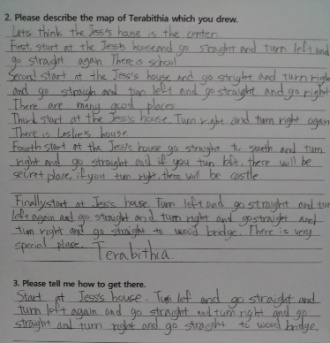 2. Please describe the map of Terabithia which you drew.
Lets think the Jess's house is the center.
First, start at the Jess's house and go straight and turn left and
go straight again There is school
Second start at the Jess's house and go stryght and turn right
and go straigh and turn left and go straight and go right
There are many good places
Third start at the Jess's house. Turn right and turn right again
There is Leslie's house
Fourth start at the Jess's house go straight to south and turn
right and go straight and if you turn left. there will be
secret place. if you turn right, there will be castle
Finally start at Jess's house. Turn left and go straight and turn
left again and go straight and turn right and go straight and
turn right and go straight to wood bridge. There is very
special place. Terabithia.
3. Please tell me how to get there.
Start at Jess's house. Turn left and go straight and
turn left again and go straight and turn right and go
straight and turn right and go straight to wood bridge.